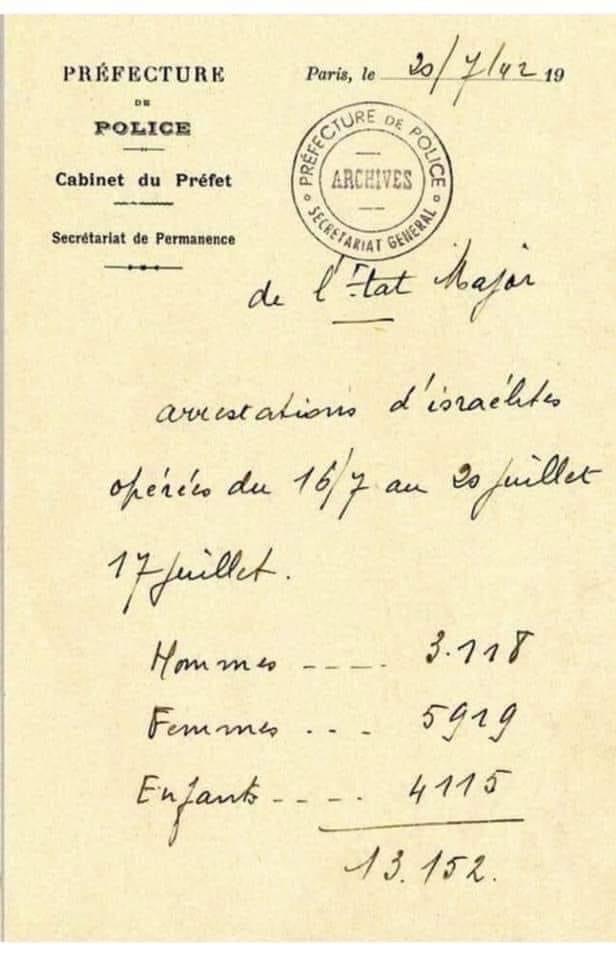 PRÉFECTURE
DE
POLICE
Cabinet du Préfet
Secrétariat de Permanence
Paris, le 20/7/42 19
PRÉFECTURE DE POLICE
ARCHIVES
SECRÉTARIAT GENERAL
de l'État Major
arrestations d'israélites
opérées du 16/7 au 20 juillet
17 juillet.
Hommes ---- 3.118
Femmes ... 5919
Enfants ----. 4115
13.152.